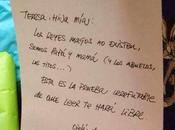 TERESA, HIJA MÍA:
LOS REYES MAGOS NO EXISTEN,
SOMOS PAPÁ Y MAMÁ (Y LOS ABUELOS,
LOS TITOS...)
ESTA ES LA PRUEBA IRREFUTABLE
DE QUE LEER TE HARÁ LIBRE